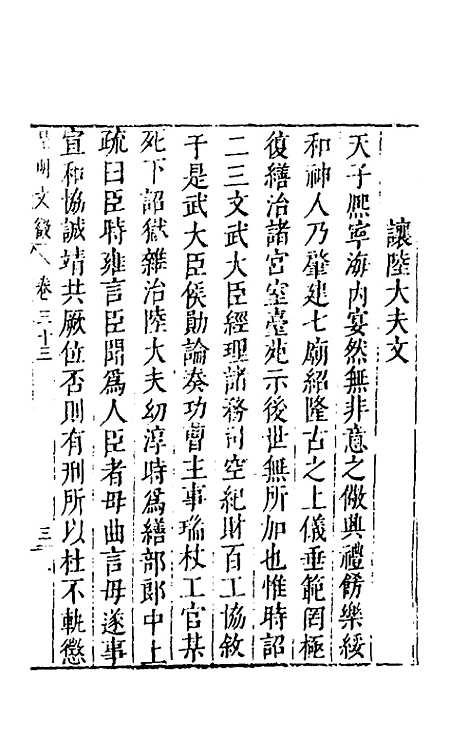 讓陸大夫文
天子熈寧海内宴然無非意之儆興禮飭樂綏
和神人乃肇建七廟紹隆古之上儀垂範罔極
復繕治諸宮室臺苑示後世無所加也惟時詔
二三文武大臣經理諸務司空紀財百工協敘
于是武大臣侯勛論奏功曹主事瑞杖工官某
死下詔獄雜治陸大夫幼淳時爲繕部郎中上
疏曰臣時雍言臣聞爲人臣者毋曲言毋遂事
宣和協誠靖共厥位否則有刑所以杜不軌懲
皇明文徵 卷三十三 三